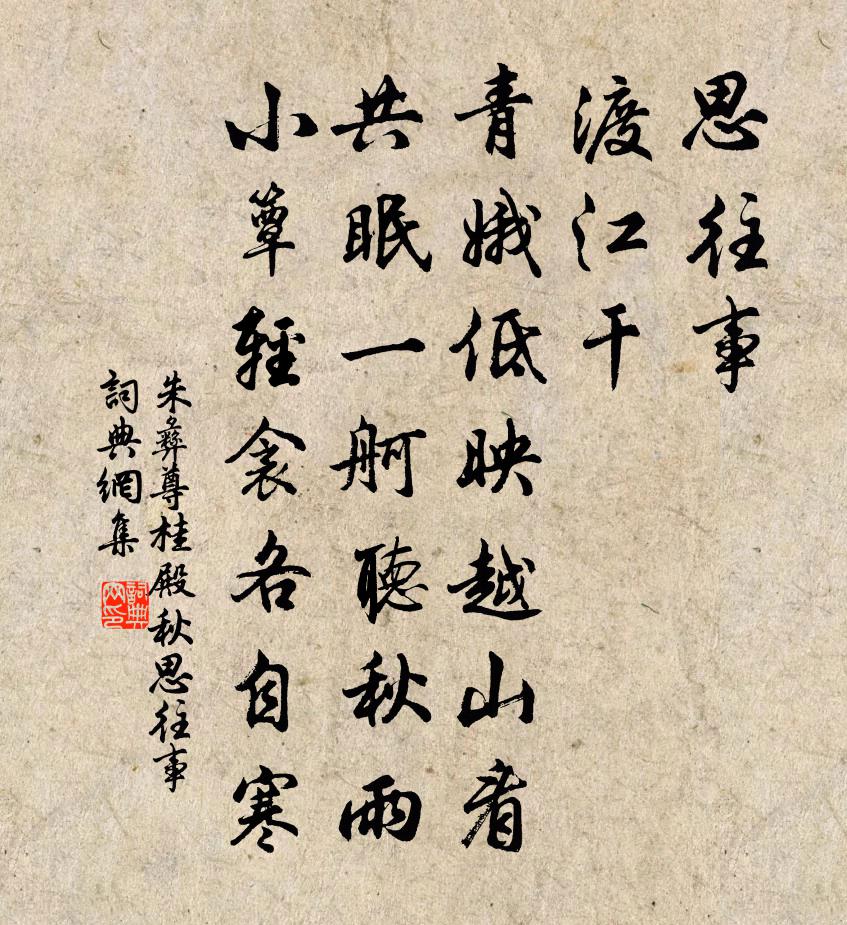 思往事
渡江干
青娥低映越山看
共眠一舸聽秋雨
小簟輕衾各自寒
朱彝尊桂殿秋思往事
詞典網集
詞典网印